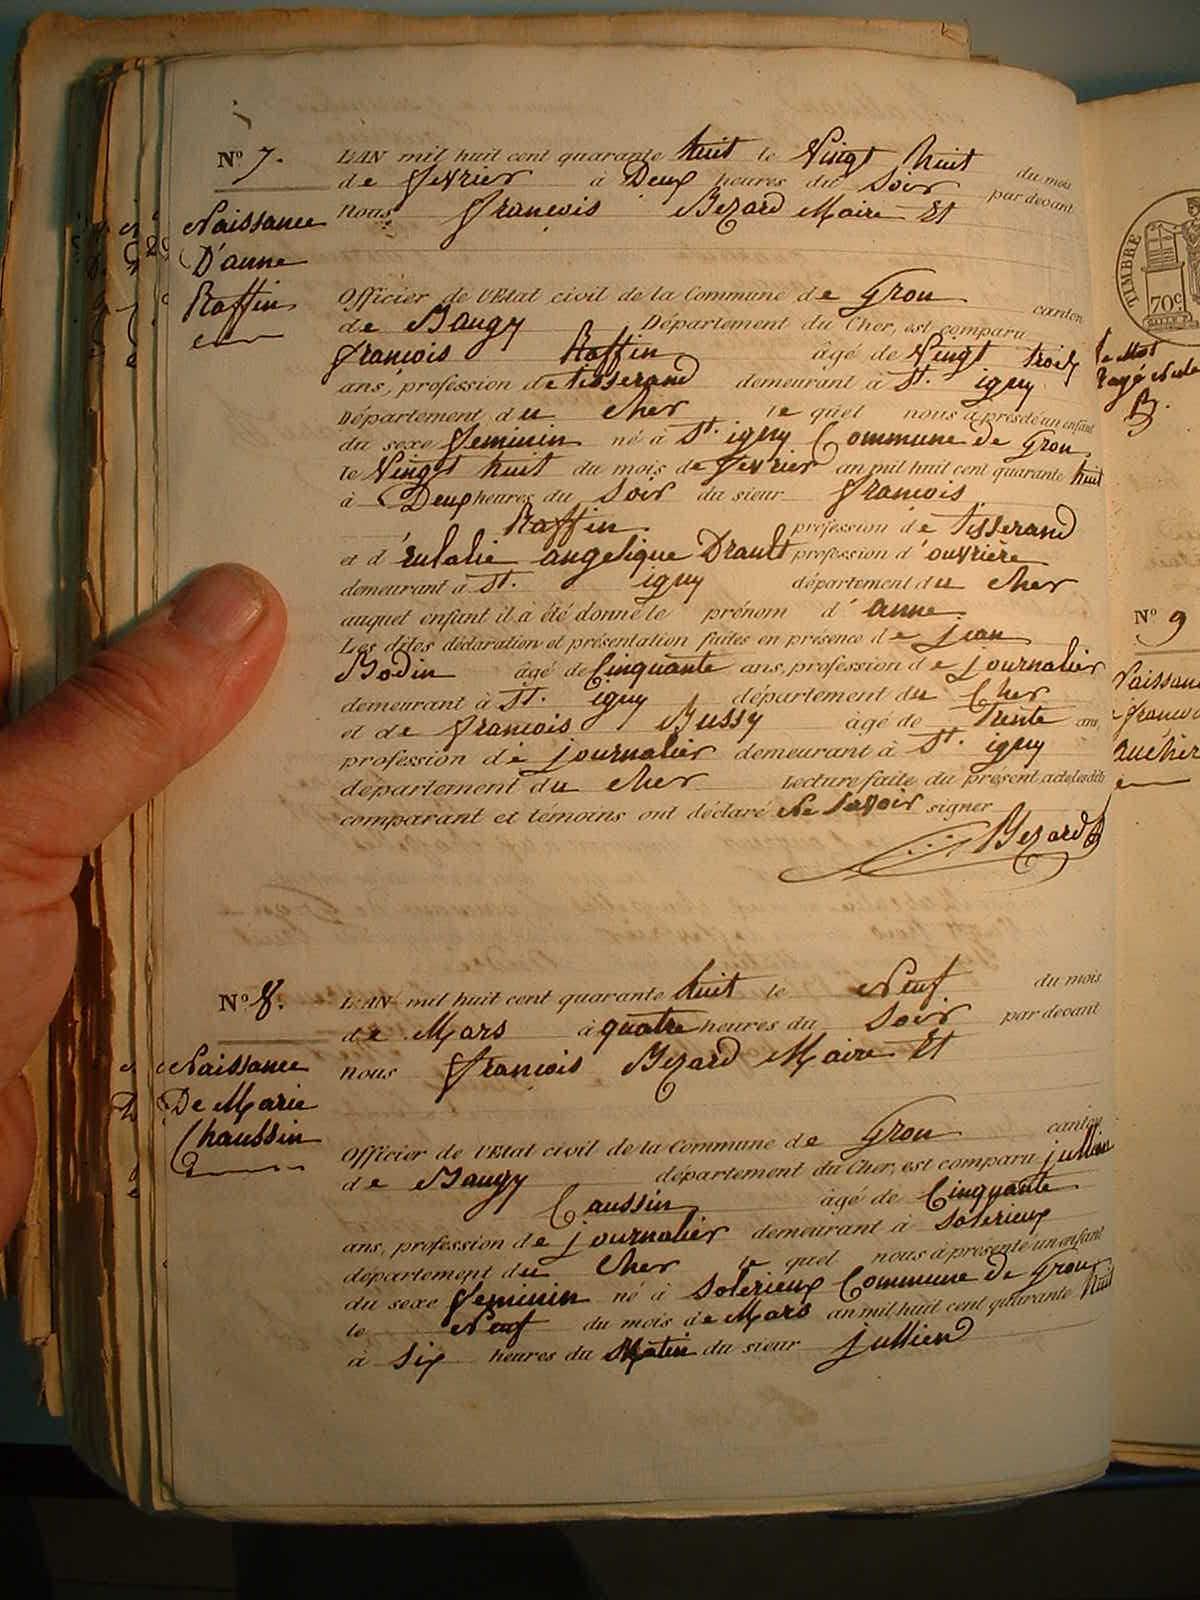 N.º 7.
L'AN mil huit cent quarante huit le Vingt huit du mois
de fevrier à Deux heures du Soir par devant
nous francois Bezard Maire Et
Naissance
D'anne
Raffin
Officier de l'Etat civil de la Commune de Gron canton
de Baugy Département du Cher, est comparu
francois Raffin âgé de Vingt trois
ans, profession de tisserand demeurant à St. igny
Département du Cher le quel nous à présenté un enfant
du sexe feminin né à St. igny Commune de Gron
le Vingt huit du mois de fevrier an mil huit cent quarante huit
à Deux heures du Soir du sieur francois
Raffin profession de tisserand
et d'eulalie angelique Drault profession d'ouvrière
demeurant à St. igny département du Cher
auquel enfant il à été donné le prénom d'anne
Les dites déclaration et présentation faites en présence de jean
Bodin âgé de Cinquante ans, profession de journalier
demeurant à St. igny département du Cher
et de francois Bussy âgé de trente ans,
profession de journalier demeurant à St. igny
département du Cher Lecture faite du présent acte, les dits
comparant et témoins ont déclaré Ne Savoir signer
Bezard
N.º 8.
L'AN mil huit cent quarante huit le Neuf du mois
de Mars à quatre heures du Soir par devant
nous francois Bezard Maire Et
Naissance
De Marie
Chaussin
Officier de l'Etat civil de la Commune de Gron canton
de Baugy département du Cher, est comparu jullien
Caussin âgé de Cinquante
ans, profession de journalier demeurant à Solerieux
département du Cher le quel nous à présenté un enfant
du sexe feminin né à Solerieux Commune de Gron
le Neuf du mois de Mars an mil huit cent quarante huit
à six heures du Matin du sieur jullien
TIMBRE
70c.
le Mot
Rayé Nule
B.
N.º 9
Naissance
francois